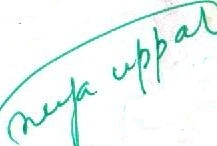 neya uppal